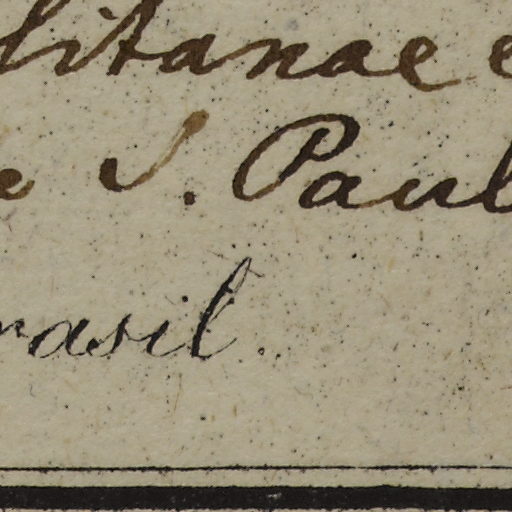 litanae e
e S. Paul
rasil.